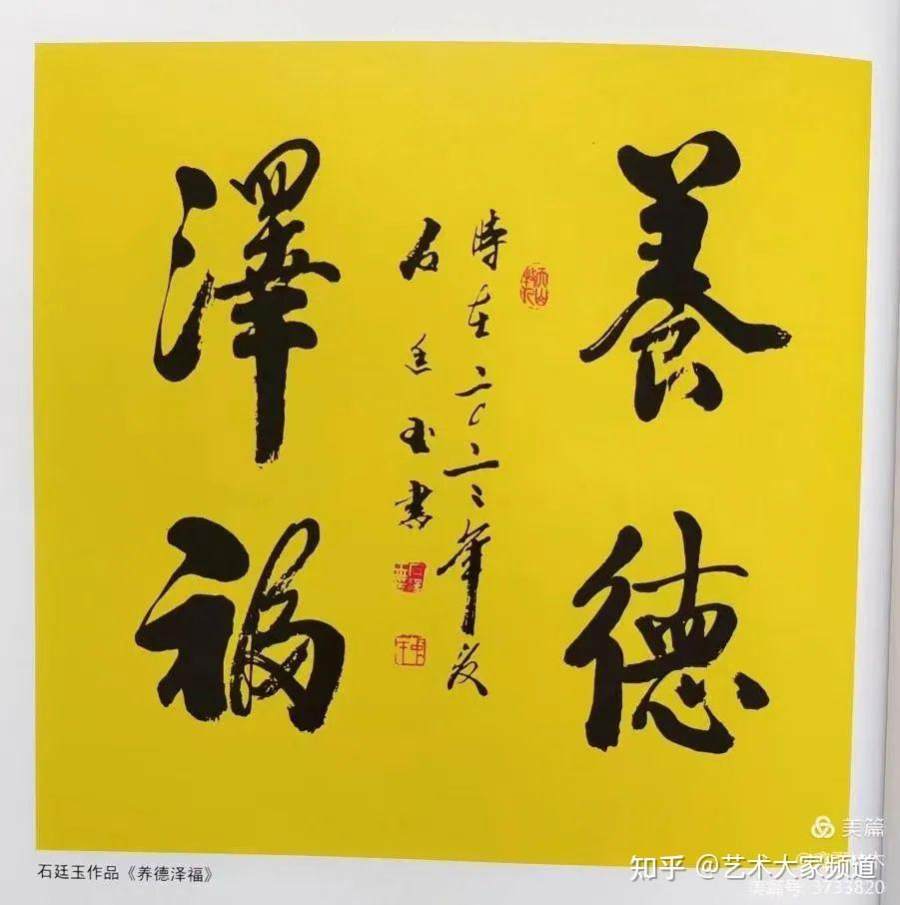 養德
澤福
時在二〇二二年夏
石廷玉書
石廷玉作品《养德泽福》
美篇
知乎 @艺术大家频道
美篇号: 3733820